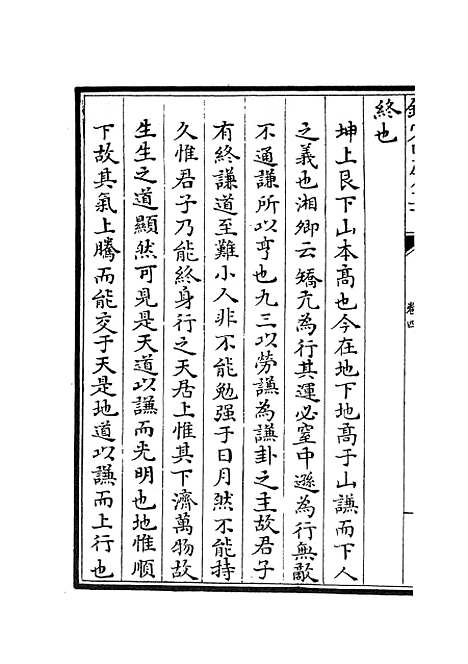 卷四
終也
坤上艮下山本髙也今在地下地髙于山謙而下人
之義也湘卿云矯亢為行其運必窒中遜為行無敵
不通謙所以亨也九三以勞謙為謙卦之主故君子
有終謙道至難小人非不能勉强于日月然不能持
久惟君子乃能終身行之天居上惟其下濟萬物故
生生之道顯然可見是天道以謙而光明也地惟順
下故其氣上騰而能交于天是地道以謙而上行也